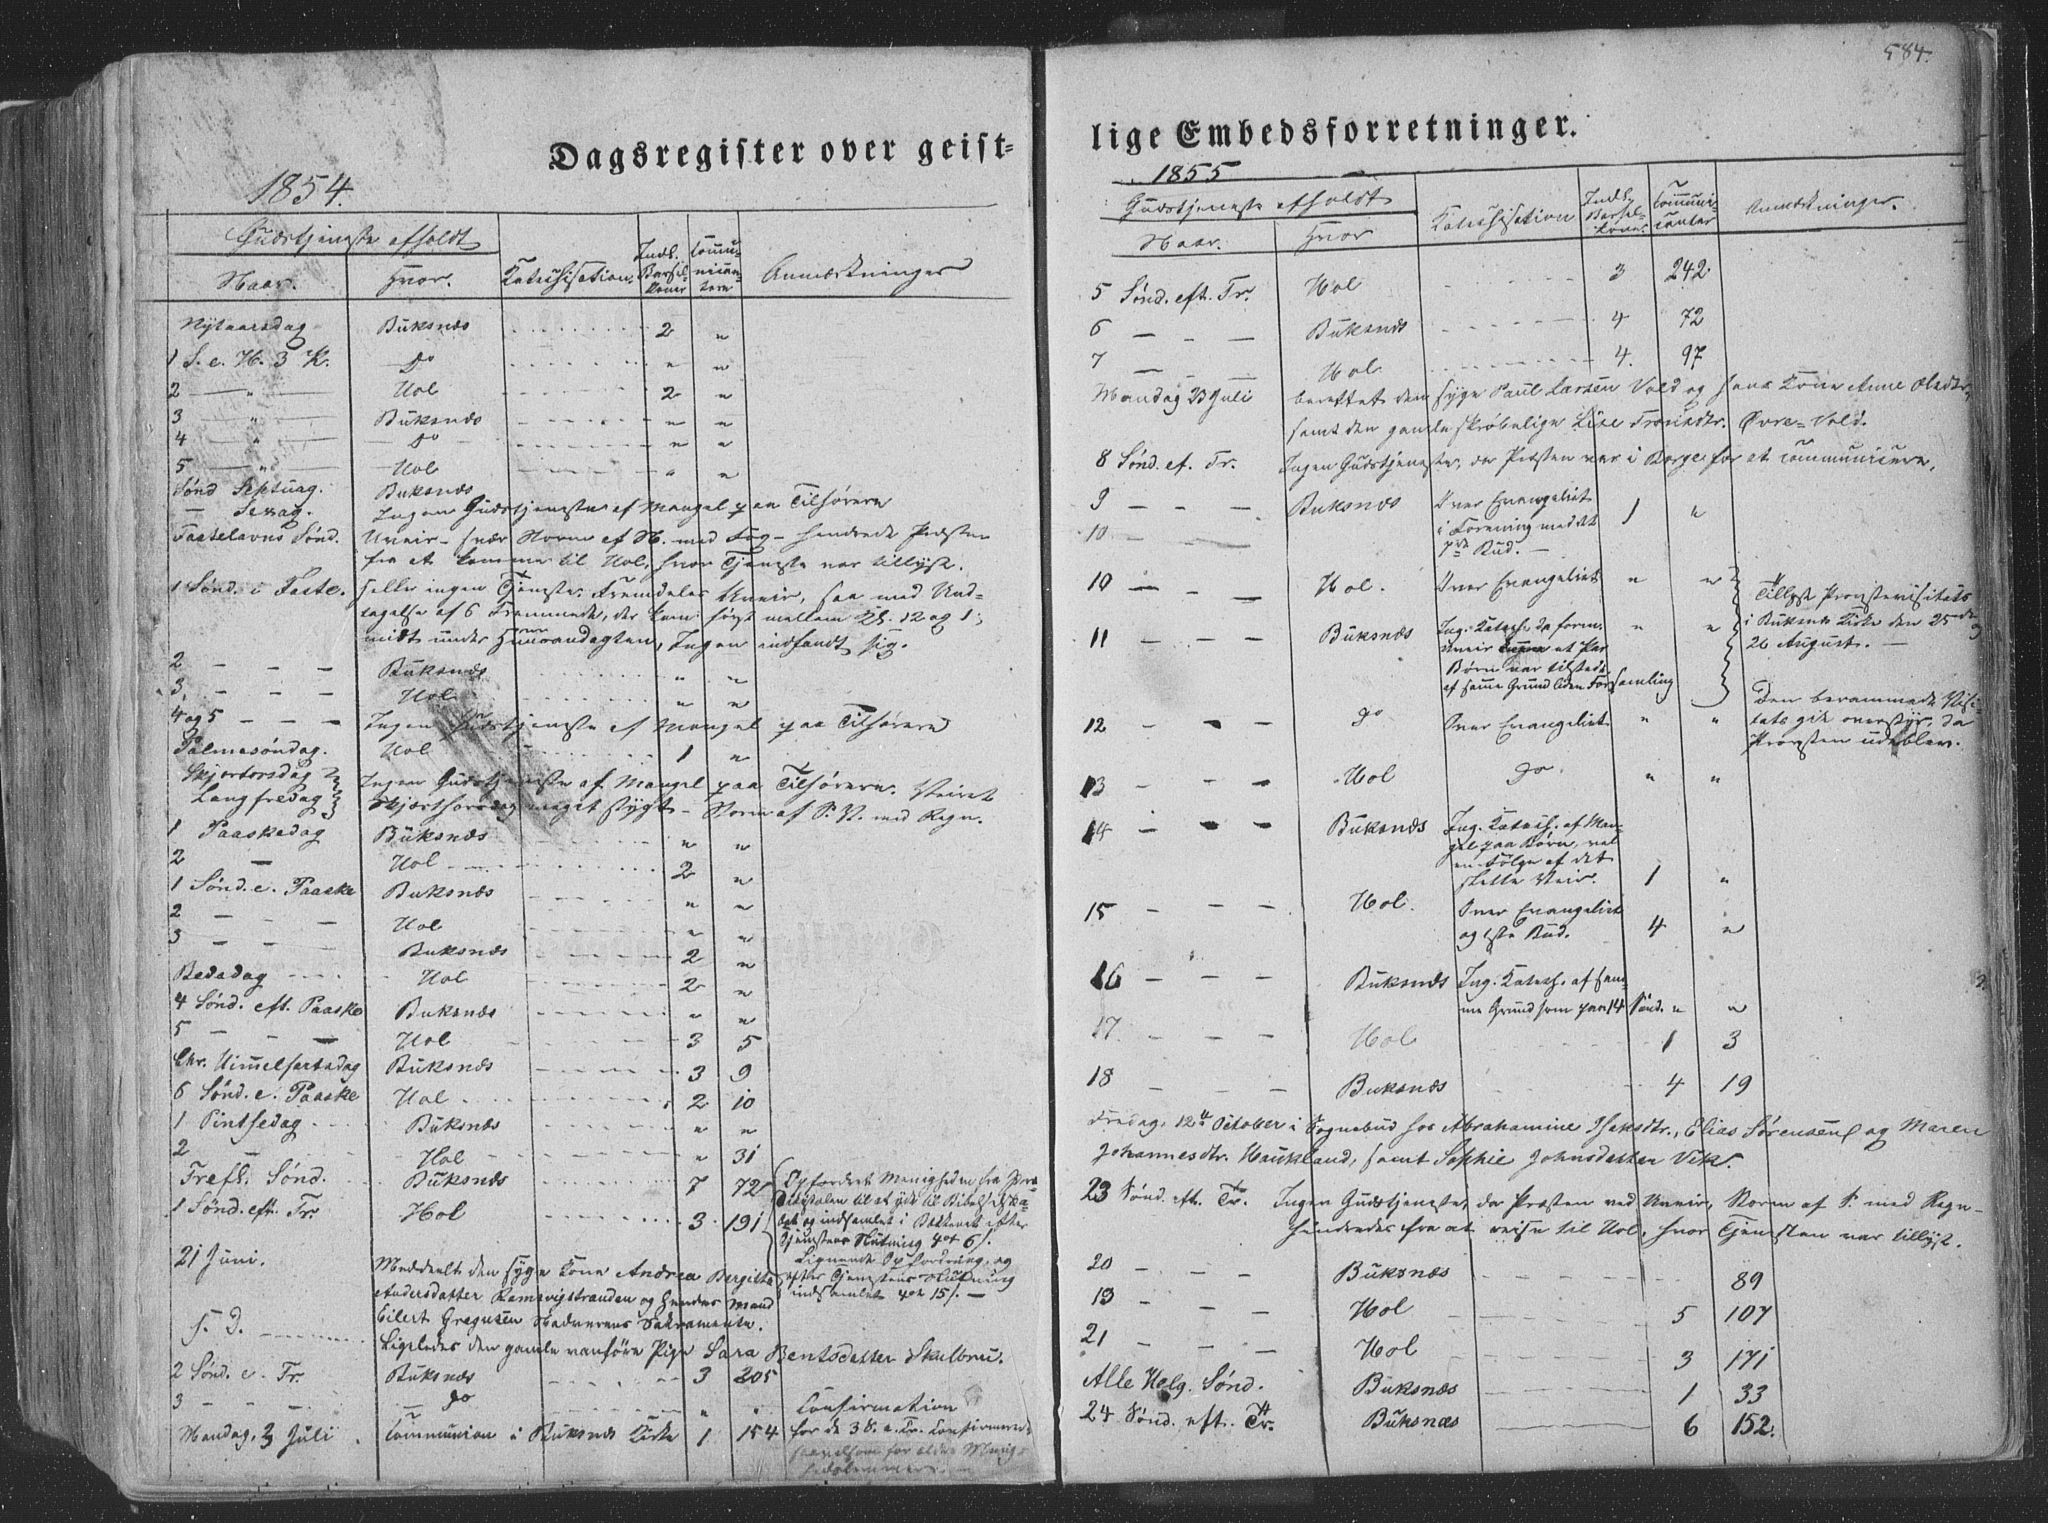 584.
Dagsregister over geist-
lige Embedsforretninger.
1854.
Gudstjeneste afholdt
Naar. Hvor. Katechisation. Indl. Barsel- koner Commu- nican- tere Anmærkninger
Nytaarsdag Buksnæs 2 "
1 S. e. H. 3 K. do " "
2 — " — Hol 2 "
3 — " — Buksnæs " "
4 — " — do " "
5 — " — Hol " "
Sønd Septuag. Buksnæs
— Sexag. Ingen Gudstjeneste af Mangel paa Tilhørere
Fastelavns Sønd. Uveir - svær Storm af N. med Fog - hindrede Præsten
fra at komme til Hol, hvor Tjeneste var tillyst.
1 Sønd. i Faste. heller ingen Tjeneste. Fremdeles Uveir, saa med Und-
tagelse af 6 Fremmede, der kom først mellem Kl. 12 og 1,
midt under Huusandagten, Ingen indfandt sig.
2 — — — Buksnæs " "
3. — — — Hol " "
4 og 5 — — — Ingen Gudstjeneste af Mangel paa Tilhørere
Palmesøndag. Hol 1 "
Skjertorsdag Ingen Gudstjeneste af Mangel paa Tilhørere. Veiret
Langfredag Skjærthorsdag meget stygt - Storm af S. V. med Regn.
1 Paaskedag Buksnæs " "
2 — Hol 2 "
1 Sønd. e. Paaske Buksnæs " "
2 — — — Hol " "
3 — — — Buksnæs 2 "
Bededag Hol 2 "
4 Sønd. eft. Paaske Buksnæs " "
5 — — — Hol 3 5
Chr. Himmelfartsdag Buksnæs 3 9
6 Sønd. e. Paaske Hol 2 10
1 Pintsedag Buksnæs " "
2 — Hol " 31
Trefl. Sønd. Buksnæs 7 72 Opfordret Menigheden fra Præ-
dikestolen til at yde til Bibelselska-
1 Sønd. eft. Tr. Hol 3 191 bet og indsamlet i Bækkenet efter
Tjenestens Slutning 4 ort 6 s.
Lignende Opfordring, og
21 Juni. Meddeelt den syge Kone Andrea Bergitte efter Tjenestens Slutning
Andersdatter Ramsvigstranden og hendes Mand indsamlet 4 ort 15 s. —
Eilert Gregusen Nadverens Sakramente.
s. D. Ligeledes den gamle vanføre Pige Sara Bentsdatter Skulbru.
2 Sønd. e. Tr. Buksnæs 3 205
3 — — do " " Confirmation
Mandag, 3 Juli Communion i Buksnæs Kirke 1 154 for de 3 S. e. Tr. Confirmerede
saavelsom for ældre Menig-
hedslemmer. —
1855
Gudstjeneste afholdt
Naar. Hvor Katechisation Indl. Barsel- koner Communi- canter Anmærkninger.
5 Sønd. eft. Tr. Hol 3 242
6 — — — Buksnæs 4 72
7 — — — Hol 4. 97
Mandag 23 Juli berettet den syge Paul Larsen Vold og hans Kone Anne Olsdtr,
samt den gamle skrøbelige Lise Troelsdtr. Øvre-Vold.
8 Sønd. ef. Tr. Ingen Gudstjeneste, da Præsten var i Borge for at communicere.
9 — — — Buksnæs Over Evangeliet
i Forening med det 1 "
10 — — 7de Bud. —
10 — — — Hol. Over Evangeliet " " Tillyst Provstevisitats
i Buksnæs Kirke den 25de og
11 — — — Buksnæs Ing. Katech. da form. " " 26 August. —
Uveir at Par
Børn var tilstede
af samme Grund liden Forsamling
12 — — — do Over Evangeliet " " Den berammede Visi-
tats gik overstyr, da
Provsten udeblev.
13 — — Hol do " "
14 — — — Buksnæs Ing. Katech. af Man-
gel paa Børn, vel
en Følge af det
slette Veir. 1 "
15 — — — Hol. Over Evangeliet
og 1ste Bud. 4 "
16 — — — Buksnæs Ing. Katech. af sam-
me Grund som paa 14 Sønd. " "
17 — — — Hol 1 3
18 — — — Buksnæs 4 19
Fredag, 12te October i Sognebud hos Abrahamine Isaksdtr., Elias Sørensen og Maren
Johannesdtr. Haukland, samt Sophie Johnsdatter Vik.
23 Sønd. eft. Tr. Ingen Gudstjeneste, da Præsten ved Uveir, Storm af S. med Regn-
hindredes fra at reise til Hol, hvor Tjenesten var tillyst.
20 — — — Buksnæs 89
19 — — — Hol 5 107
21 — — — Hol 3 171
Alle Helg. Sønd. Buksnæs 1 33
24 Sønd. eft. Tr. Buksnæs 6 152.